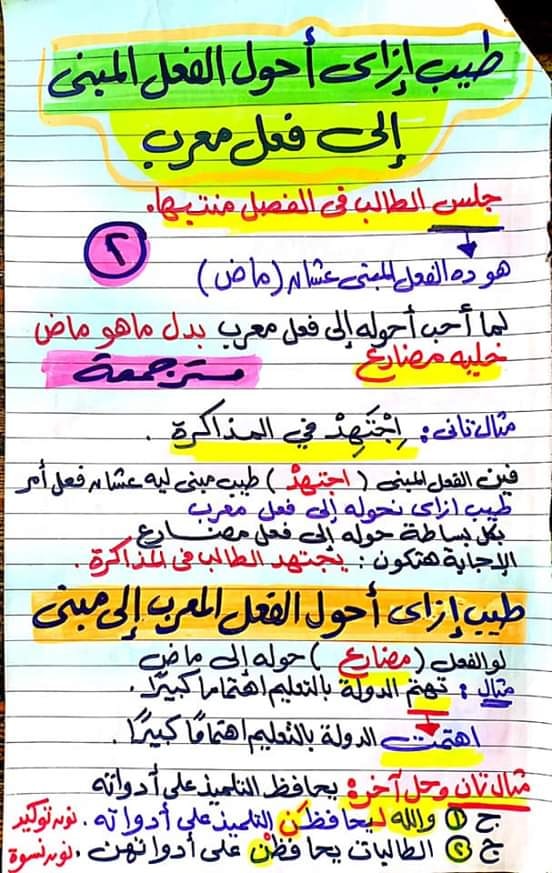 طيب إزاى أحول الفعل المبنى
إلى فعل معرب
جلس الطالب فى الفصل منتبها.
٢
هو ده الفعل المبنى عشان (ماض)
لما أحب أحوله إلى فعل معرب بدل ماهو ماض
خليه مضارع
مستر جمعة
مثال تانى: اِجْتَهِدْ في المذاكرة .
فين الفعل المبنى ( اجتهدْ ) طيب مبنى ليه عشان فعل أمر
طيب ازاى نحوله إلى فعل معرب
بكل بساطة حوله إلى فعل مضارع
الإجابة هتكون : يجتهد الطالب فى المذاكرة .
طيب إزاى أحول الفعل المعرب إلى مبنى
لو الفعل ( مضارع ) حوله إلى ماض
مثال : تهتم الدولة بالتعليم اهتماما كبيرًا .
اهتمت الدولة بالتعليم اهتمامًا كبيرًا .
مثال تان وحل آخر : يحافظ التلميذ على أدواته
ج ١ والله ليحافظن التلميذ على أدواته . نون توكيد
ج ٢ الطالبات يحافظْن على أدواتهن . نون نسوة